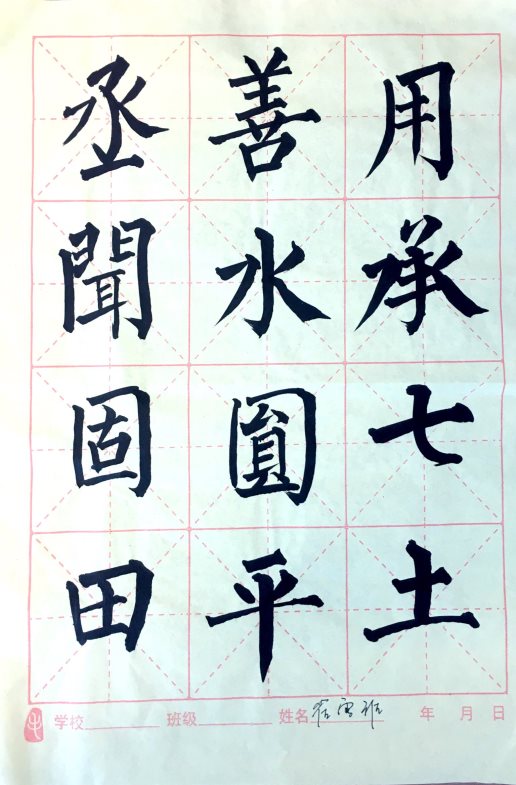 用承七土
善水圓平
丞聞固田
学校 班级 姓名 年 月 日